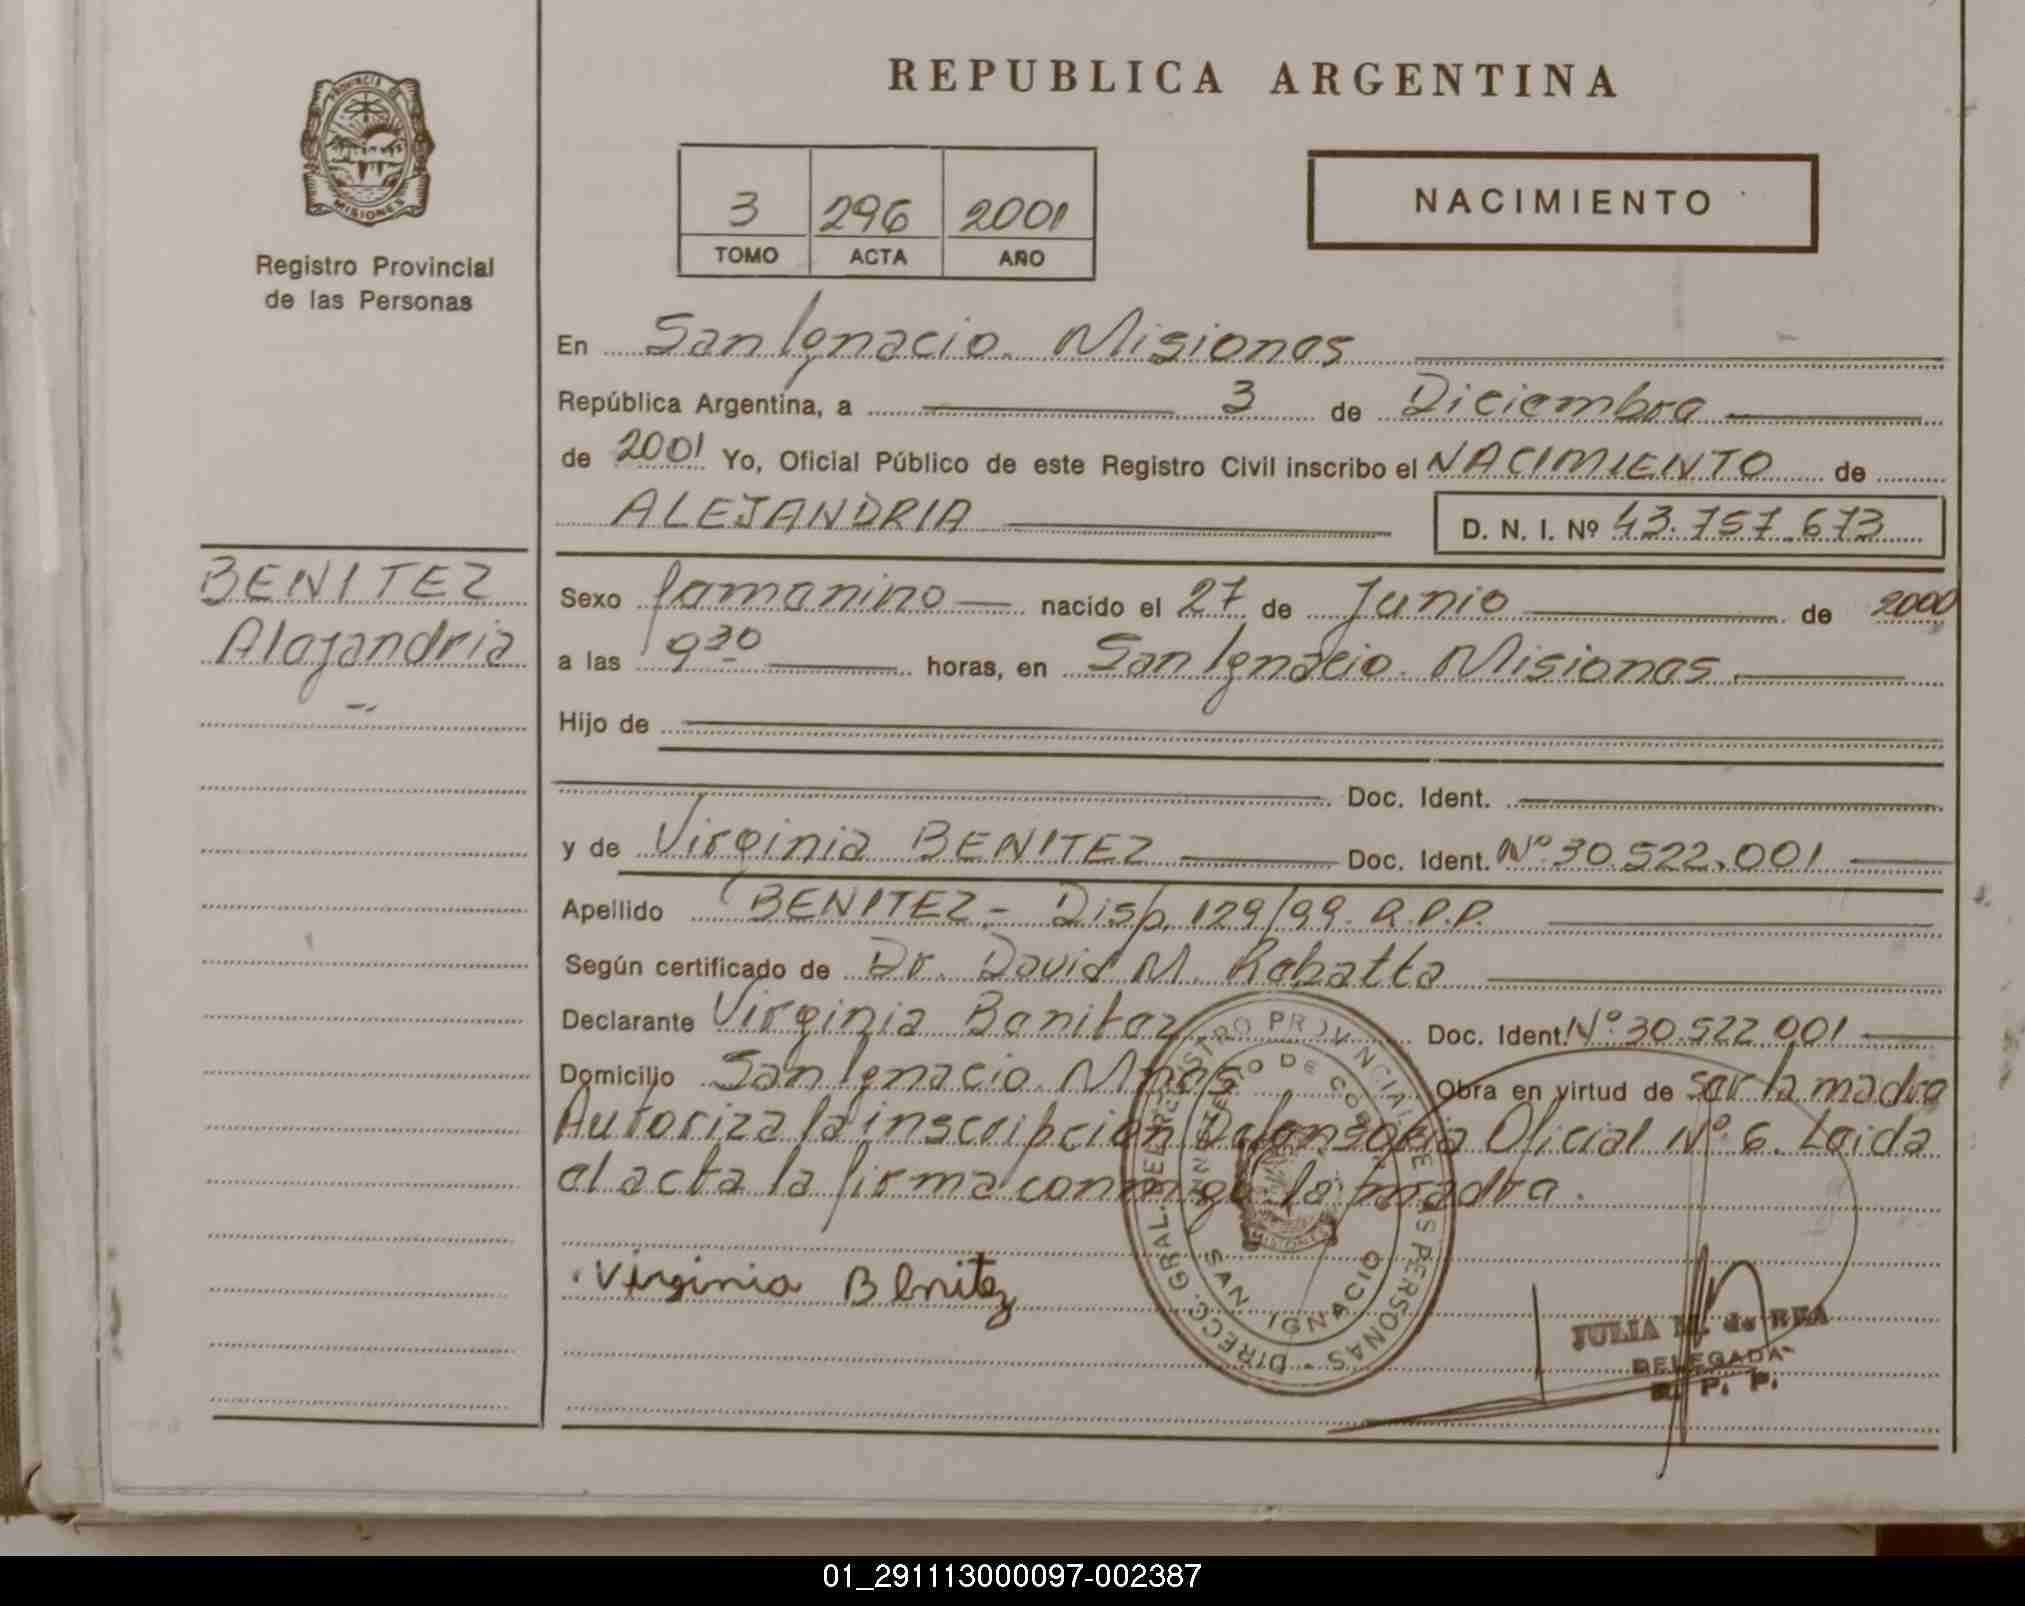 REPUBLICA ARGENTINA
PROVINCIA DE MISIONES
Registro Provincial
de las Personas
3 296 2001
TOMO ACTA AÑO
NACIMIENTO
En San Ignacio. Misiones
República Argentina, a 3 de Diciembre
de 2001 Yo, Oficial Público de este Registro Civil inscribo el NACIMIENTO de
ALEJANDRIA D. N. I. Nº 43.757.673
BENITEZ
Alejandria
Sexo femenino nacido el 27 de Junio de 2000
a las 9 30 horas, en San Ignacio. Misiones
Hijo de
Doc. Ident.
y de Virginia BENITEZ Doc. Ident. Nº 30.522.001
Apellido BENITEZ - Disp. 129/99. R.P.P.
Según certificado de Dr. David M.
Declarante Virginia Benitez Doc. Ident. Nº 30.522.001
Domicilio San Ignacio. Mnes. Obra en virtud de ser la madre
Autoriza la inscripción Defensoria Oficial Nº 6. Leida
el acta la firma conmigo la madre.
Virginia Benitez
DIRECC. GRAL. DEL REGISTRO PROVINCIAL DE LAS PERSONAS
SAN IGNACIO
MISIONES
JULIA M. de REA
DELEGADA
R. P. P.
01_291113000097-002387